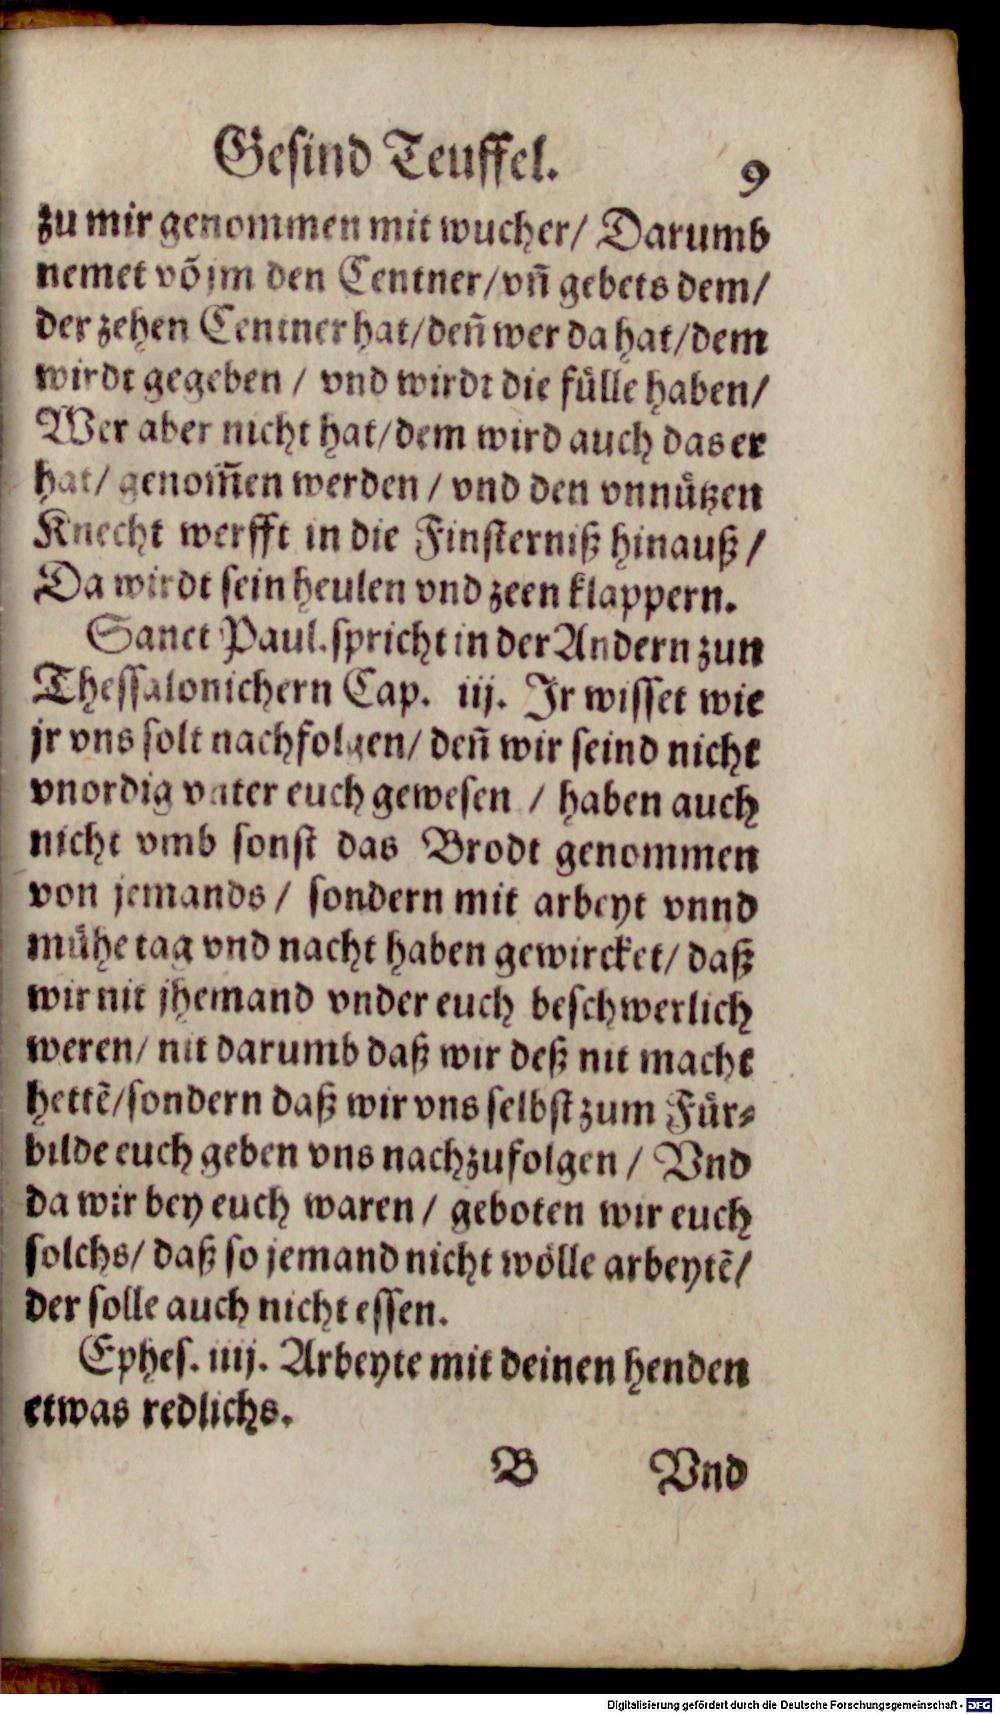 Gesind Teuffel. 9
zu mir genommen mit wucher/ Darumb
nemet võ jm den Centner/ vñ gebets dem/
der zehen Centner hat/ deñ wer da hat/ dem
wirdt gegeben / vnd wirdt die fülle haben/
Wer aber nicht hat/ dem wird auch das er
hat/ genom̃en werden / vnd den vnnützen
Knecht werfft in die Finsterniß hinauß /
Da wirdt sein heulen vnd zeen klappern.
Sanct Paul. spricht in der Andern zun
Thessalonichern Cap. iij. Jr wisset wie
jr vns solt nachfolgen/ deñ wir seind nicht
vnordig vnter euch gewesen / haben auch
nicht vmb sonst das Brodt genommen
von jemands / sondern mit arbeyt vnnd
mühe tag vnd nacht haben gewircket/ daß
wir nit jhemand vnder euch beschwerlich
weren/ nit darumb daß wir deß nit macht
hettẽ/ sondern daß wir vns selbst zum Für-
bilde euch geben vns nachzufolgen / Vnd
da wir bey euch waren / geboten wir euch
solchs/ daß so jemand nicht wölle arbeytẽ/
der solle auch nicht essen.
Ephes. iiij. Arbeyte mit deinen henden
etwas redlichs.
B Vnd
Digitalisierung gefördert durch die Deutsche Forschungsgemeinschaft - DFG